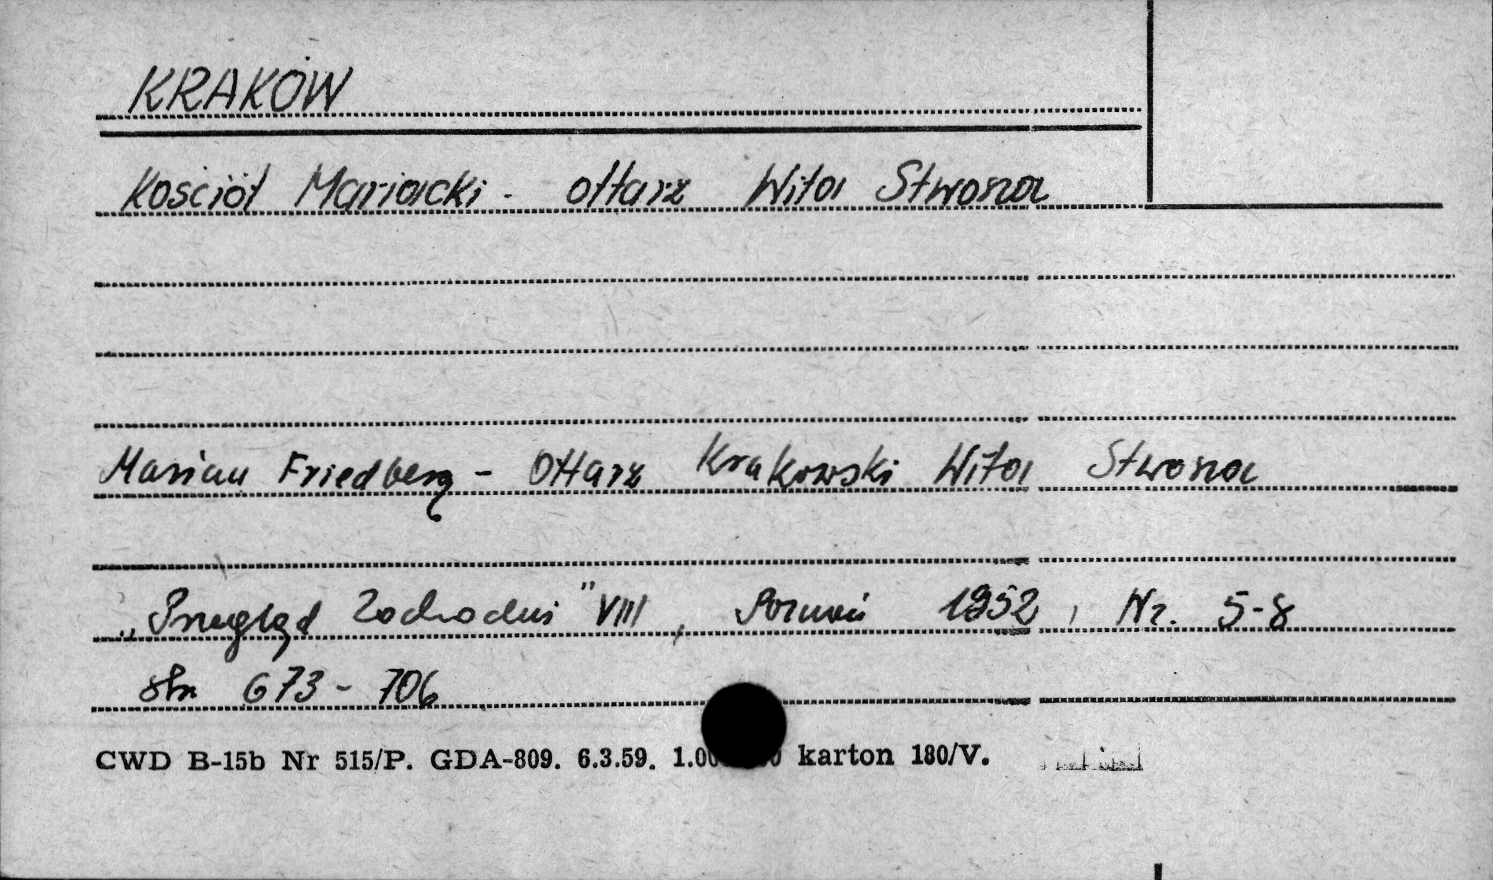 KRAKÓW
Kościół Mariacki - ołtarz Wita Stwosza
Marian Friedberg - Ołtarz Krakowski Wita Stwosza
„Przegląd Zachodni" VIII, Poznań 1952, Nr. 5-8
str 673-706
CWD B-15b Nr 515/P. GDA-809. 6.3.59. karton 180/V.